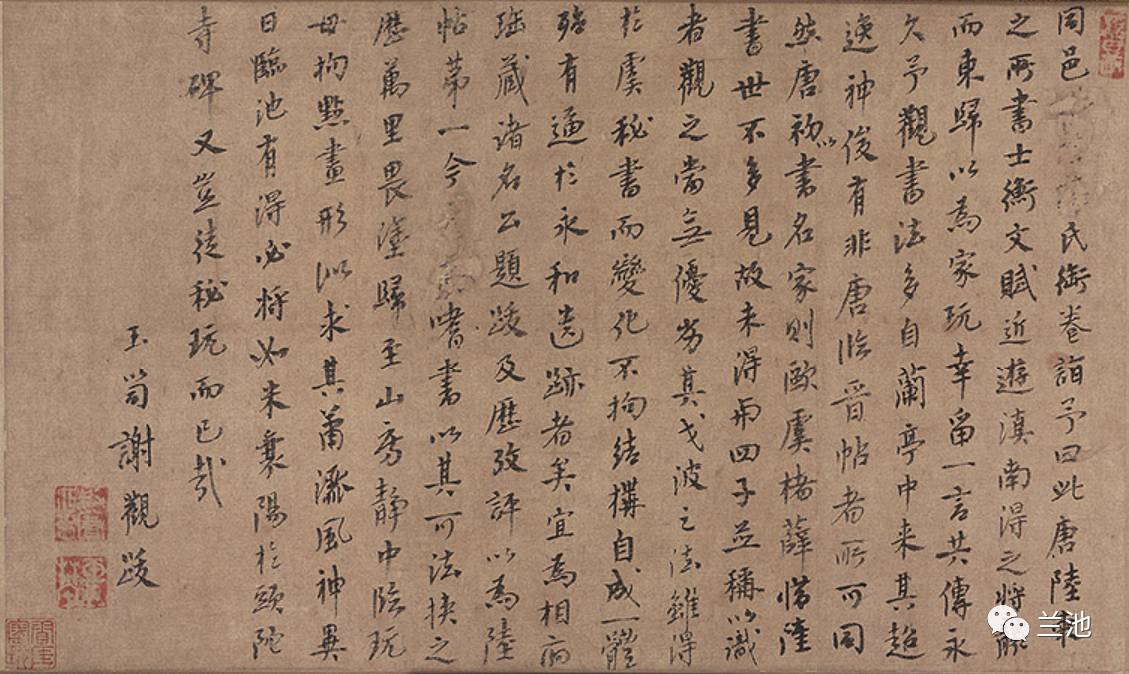 同邑氏衜卷詣予曰此唐陸
之所書士衡文賦近遊滇南得之將
而東歸以為家玩幸留一言其傳永
久予觀書法多自蘭亭中来其超
逸神俊有非唐臨晉帖者所可同
然唐初以書名家則歐虞褚薛惜陸
書世不多見故未得與四子並稱以識
者觀之當無優劣其戈波之法雖得
於虞秘書而變化不拘結構自成一體
殆有逼於永和遺跡者矣宜為相府
珎藏諸名公題跋及歷攷評以為陸
帖第一今嗜書以其可法挾之
歷萬里畏塗歸至山房靜中臨玩
毋拘點畫形似求其蕭散風神異
日臨池有得必將如米襄陽於頭陀
寺碑又豈徒秘玩而已哉
玉笥謝觀跋
兰池